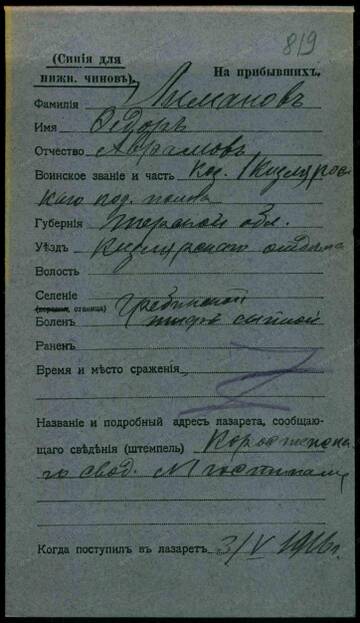 819
(Синія для
нижн. чиновъ).
На прибывшихъ.
Фамилія Лимановъ
Имя Ѳедоръ
Отчество Абрамовъ
Воинское званіе и часть Каз. 1 Кизляро
каго под. полка
Губернія Терской обл.
Уѣздъ Кизлярскаго отдѣла
Волость
Селеніе Гребенской
(деревня, станица)
Боленъ тифъ сыпной
Раненъ
Время и мѣсто сраженія
Названіе и подробный адресъ лазарета, сообщаю-
щаго свѣдѣнія (штемпель)
го свод. госпиталь
Когда поступилъ въ лазаретъ 3/V 1916 г.